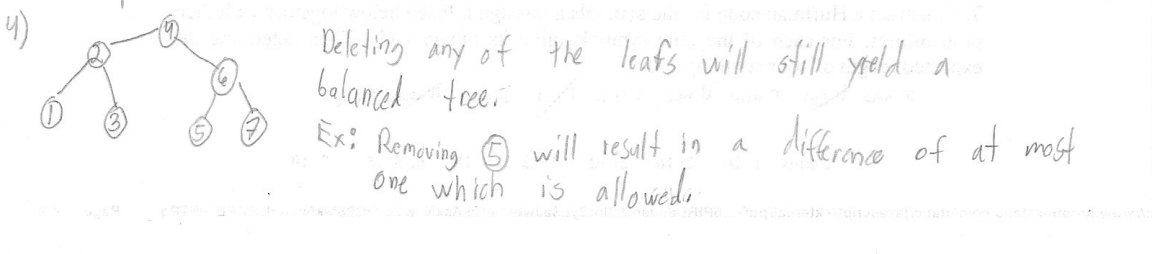 4)
4
2
6
1
3
5
7
Deleting any of the leafs will still yield a
balanced tree.
Ex: Removing 5 will result in a difference of at most
one which is allowed.